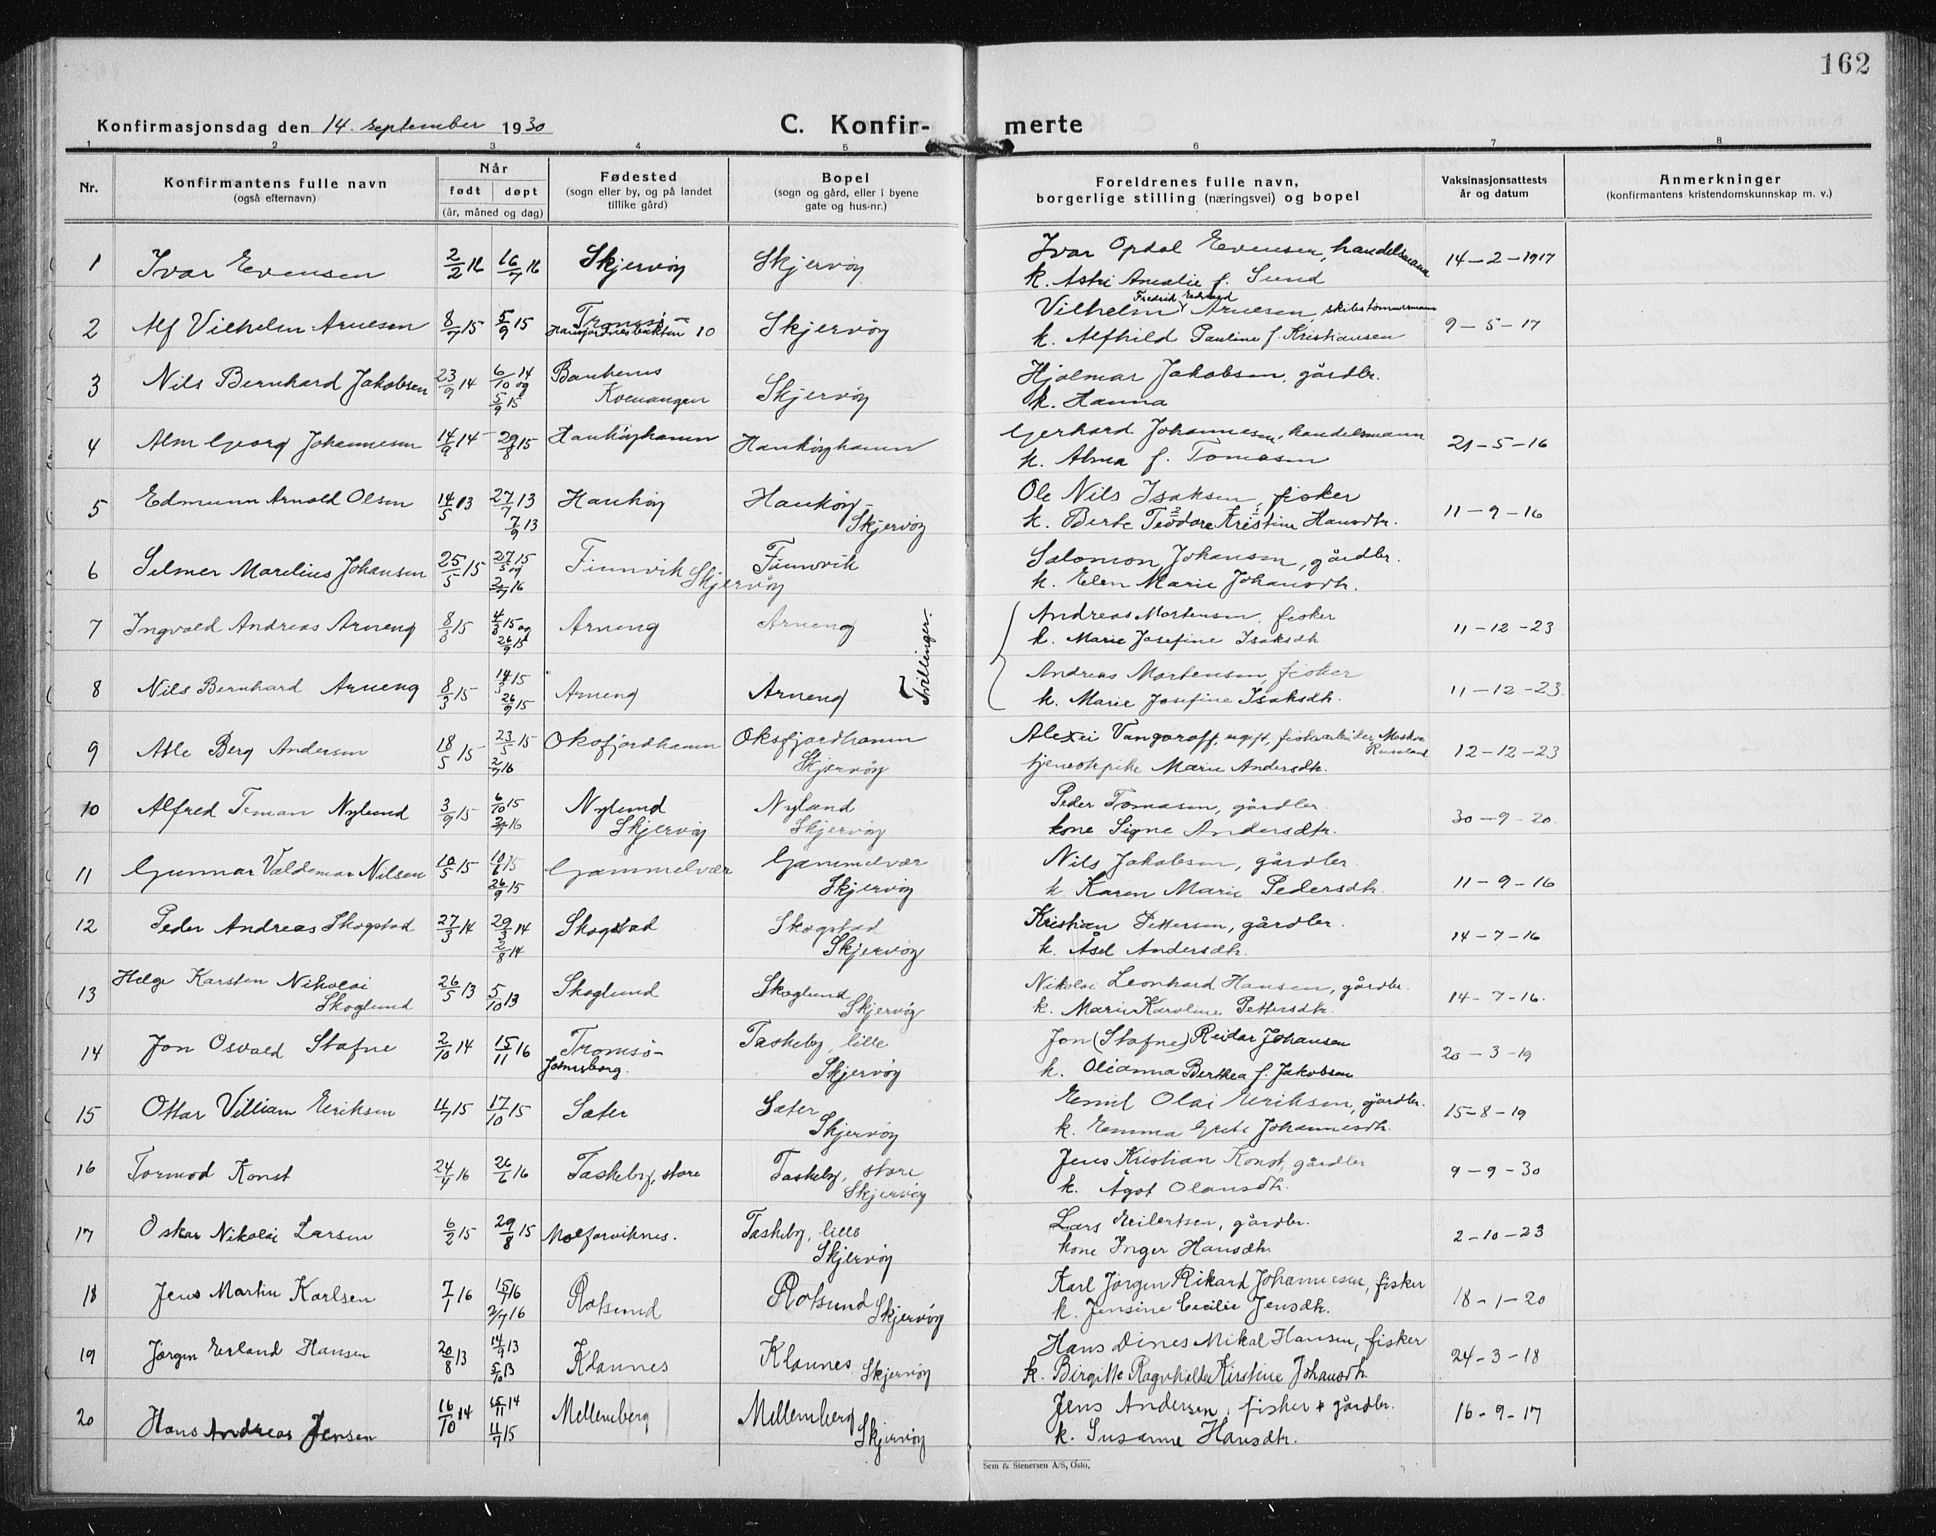 162
Konfirmasjonsdag den 14. september 1930 C. Konfir- merte
1 2 3 4 5 6 7 8
Nr. Konfirmantens fulle navn (også efternavn) Når født døpt (år, måned og dag) Fødested (sogn eller by, og på landet tillike gård) Bopel (sogn og gård, eller i byene gate og hus-nr.) Foreldrenes fulle navn, borgerlige stilling (næringsvei) og bopel Vaksinasjonsattests år og datum Anmerkninger (konfirmantens kristendomskunnskap m. v.)
1 Ivar Evensen 2/2 16 16/7 16 Skjervøy Skjervøy Ivar Opdal Evensen, handelsmann
k. Astri Amalie f. Sund 14-2-1917
2 Alf Vilhelm Arnesen 8/7 15 5/9 15 Tromsø- 10 Skjervøy Vilhelm Fredrik Edvard Arnesen, skibstømmermann
k. Alfhild Pauline f. Kristiansen 9-5-17
3 Nils Bernhard Jakobsen 23/9 14 6/10 14 og 5/9 15 Kvenangen Skjervøy Hjalmar Jakobsen, gårdbr.
k. Hanna
4 Alm Georg Johannesen 14/9 14 29/8 15 Haukøyhamn Haukøyhamn Gerhard Johannesen, handelsmann
k. Alma f. Tomasen 21-5-16
5 Edmunn Arnold Olsen 14/5 13 27/7 13 7/9 13 Haukøy Haukøy- Skjervøy Ole Nils Isaksen, fisker
k. Berte Teodore Kristine Hansdtr. 11-9-16
6 Selmer Marelius Johansen 25/5 15 27/5 15 og 2/7 16 Finnvik Skjervøy Finnvik Salomon Johansen, gårdbr.
k. Elen Marie Johansdtr.
7 Ingvald Andreas Arneng 8/3 15 4/3 15 og 26/9 15 Arneng Arneng Tvillinger. Andreas Mortensen, fisker
k. Marie Josefine Isaksdtr. 11-12-23
8 Nils Bernhard Arneng 8/3 15 14/3 15 26/9 15 Arneng Arneng Andreas Mortensen, fisker
k. Marie Josefine Isaksdtr. 11-12-23
9 Atle Berg Andersen 18/5 15 23/5 15 2/7 16 Oksfjordhamn Oksfjordhamn Skjervøy Alexei Vangoroff, ugift, fiskearbeider, Moskva Russland
tjenestepike Marie Andersdtr. 12-12-23
10 Alfred Teman Nylund 3/9 15 6/10 15 2/7 16 Nylund Skjervøy Nylund Skjervøy Peder Tomasen, gårdbr.
kone Signe Andersdtr. 30-9-20
11 Gunnar Valdemar Nilsen 10/5 15 10/6 15 26/9 15 Gammelvær Gammelvær Skjervøy Nils Jakobsen, gårdbr.
k. Karen Marie Pedersdtr. 11-9-16
12 Peder Andreas Skogstad 27/3 14 29/3 14 2/8 14 Skogstad Skogstad Skjervøy Kristian Pettersen, gårdbr.
k. Åsel Andersdtr. 14-7-16
13 Helge Karsten Nikolai Skoglund 26/5 13 5/10 13 Skoglund Skoglund Skjervøy Nikolai Leonhard Hansen, gårdbr.
k. Marie Karoline Pettersdtr. 14-7-16.
14 Jon Osvald Stafne 2/10 14 15/11 16 Tromsø- Taskeby, lille Skjervøy Jon (Stafne) Reidar Johansen
k. Olianna Berthea f. Jakobsen 20-3-19
15 Ottar Villiam Eriksen 11/7 15 17/10 15 Sæter Sæter Skjervøy Emil Olai Eriksen, gårdbr.
k. Emma Grete Johannesdtr. 15-8-19
16 Tormod Konst 24/4 16 26/6 16 Taskeby, store Taskeby, store Skjervøy Jens Kristian Konst, gårdbr
k. Ågot Olausdtr. 9-9-30
17 Oskar Nikolai Larsen 6/2 15 29/8 15 Molforviknes. Taskeby, lille Skjervøy Lars Eilertsen, gårdbr.
kone Inger Hansdtr. 2-10-23
18 Jens Martin Karlsen 7/1 16 15/1 16 2/7 16 Rotsund Rotsund Skjervøy Karl Jørgen Rikard Johannesen, fisker
k. Jensine Cecilie Jensdtr. 18-1-20
19 Jørgen Erland Hansen 20/8 13 14/9 13 5/10 13 Klaunes Klaunes Skjervøy Hans Dines Mikal Hansen, fisker
k. Birgitte Ragnhilda Kirstine Johansdtr. 24-3-18
20 Hans Andreas Jensen 16/10 14 15/11 14 11/7 15 Mellemberg Mellemberg Skjervøy Jens Andersen, fisker & gårdbr.
k. Susanne Hansdtr. 16-9-17
Sem & Stenersen A/S, Oslo.